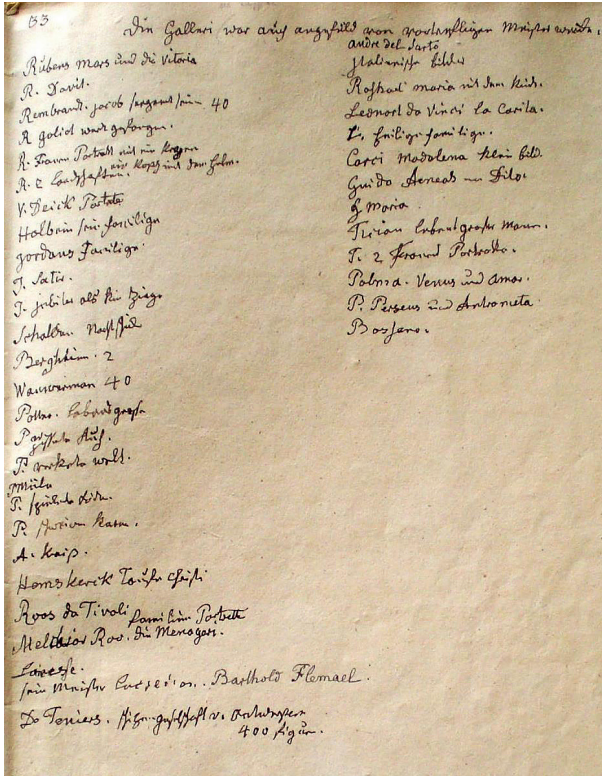 33
Die Galleri war auch angefüld von vortrefligen Meister werke.
Rubens Mars und die Vitoria
R. Davit.
Rembrandt. jacob segent sein 40
R goliat wert gefangen.
R. Portrait mit ein kragen
R. 2 Landschaften. ein Kopf mit dem helm.
V. Deick Portrete
Holbein sein familige
Jordans familige.
J. Satir.
J. jubiter als kin Ziege
Schalken Nachtstük
Berghheim. 2
Wauwerman 40
Potter. Lebensgrosse
P. pissente Kuh.
P. verkerte welt.
P. spielente
P.
A.
Hemskerck Taufe Christi
Roos da Tivoli familien Portrett
Melchior Roo. die Menageri.
Laresse.
sein Meister Barthold Flemael.
Da Teniers. v. Antwerpen
400 figur.
andre del Sarto
Italienische bilder
Raphael maria mit dem Kind.
Leonart da Vinci la Carita.
L. heilige familige.
Corei Madalena klein bild.
Guido Aeneas un Dito.
G Maria
Tician lebensgroser Mann.
T. 2 frauen Portraite.
Palma. Venus und Amor.
P. Perseus und Antrometa
Bassano.